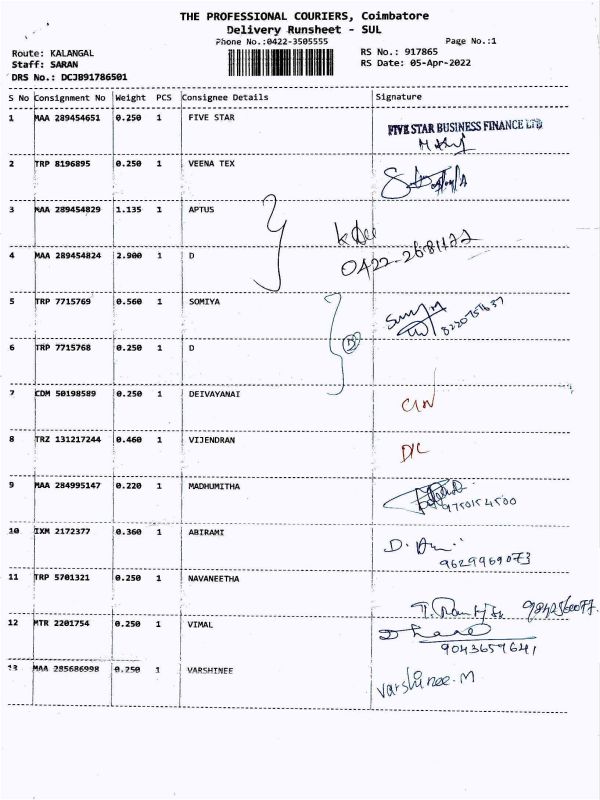 THE PROFESSIONAL COURIERS, Coimbatore
Delivery Runsheet - SUL
Phone No.:0422-3505555 Page No.:1
Route: KALANGAL RS No.: 917865
Staff: SARAN RS Date: 05-Apr-2022
DRS No.: DCJB91786501
S No Consignment No Weight PCS Consignee Details Signature
1 MAA 289454651 0.250 1 FIVE STAR FIVE STAR BUSINESS FINANCE LTD
2 TRP 8196895 0.250 1 VEENA TEX
3 MAA 289454829 1.135 1 APTUS
4 MAA 289454824 2.900 1 D 0422-2681172
5 TRP 7715769 0.560 1 SOMIYA
6 TRP 7715768 0.250 1 D
7 CDM 50198589 0.250 1 DEIVAYANAI
8 TRZ 131217244 0.460 1 VIJENDRAN D/L
9 MAA 284995147 0.220 1 MADHUMITHA
9750154500
10 IXM 2172377 0.360 1 ABIRAMI
9629969073
11 TRP 5701321 0.250 1 NAVANEETHA
12 MTR 2201754 0.250 1 VIMAL
9043659641
13 MAA 285686998 0.250 1 VARSHINEE varshinee.M